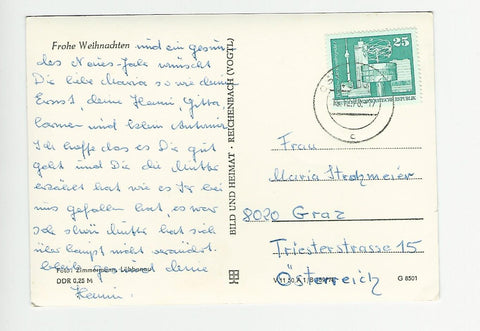 Frohe Weihnachten und ein gesun
des Neues Jahr wünscht
Die liebe Maria so wie deine
Ernst, deine Hanni, Gitta
und
Ich hoffe das es Dir gut
geht und Die die Mutter
erzählt hat wie es Ihr bei
uns gefallen hat, es war
seh schön Mutter hat sich
über haupt nicht verändert.
deine
Hanni.
Zimmerplatz Lübbenau
DDR 0,25 M
BILD UND HEIMAT · REICHENBACH (VOGTL)
25
DEUTSCHE DEMOKRATISCHE REPUBLIK
c
Frau
Maria Strohmeier
8020 Graz
Triesterstrasse 15
Österreich
G 8501